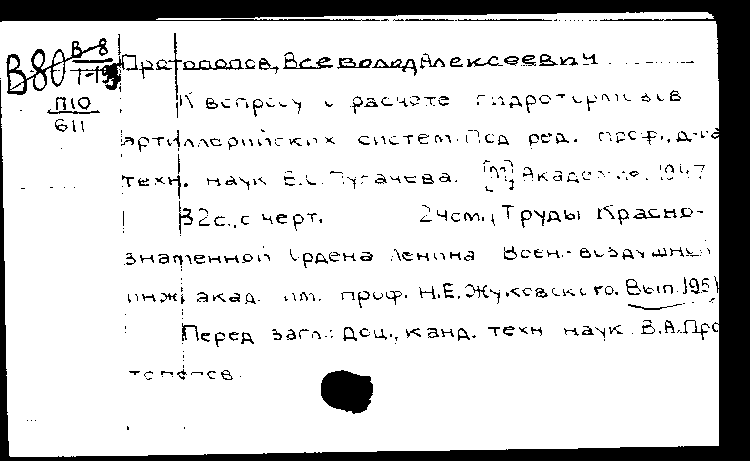 В80
В-8
Т-193
П10
611
Протопопов, Всеволод Алексеевич
К вопросу о расчете гидротормозов
артиллерийских систем. Под ред. проф., д-ра
техн. наук В.С. Пугачева. [М] Академия. 1947
32с., с черт. 24см., Труды Красно-
знаменной Ордена Ленина Воен.-воздушной
инж. акад. им. проф. Н.Е. Жуковского. Вып. 195
Перед загл.: Доц., канд. техн наук В.А. Про
топопов.